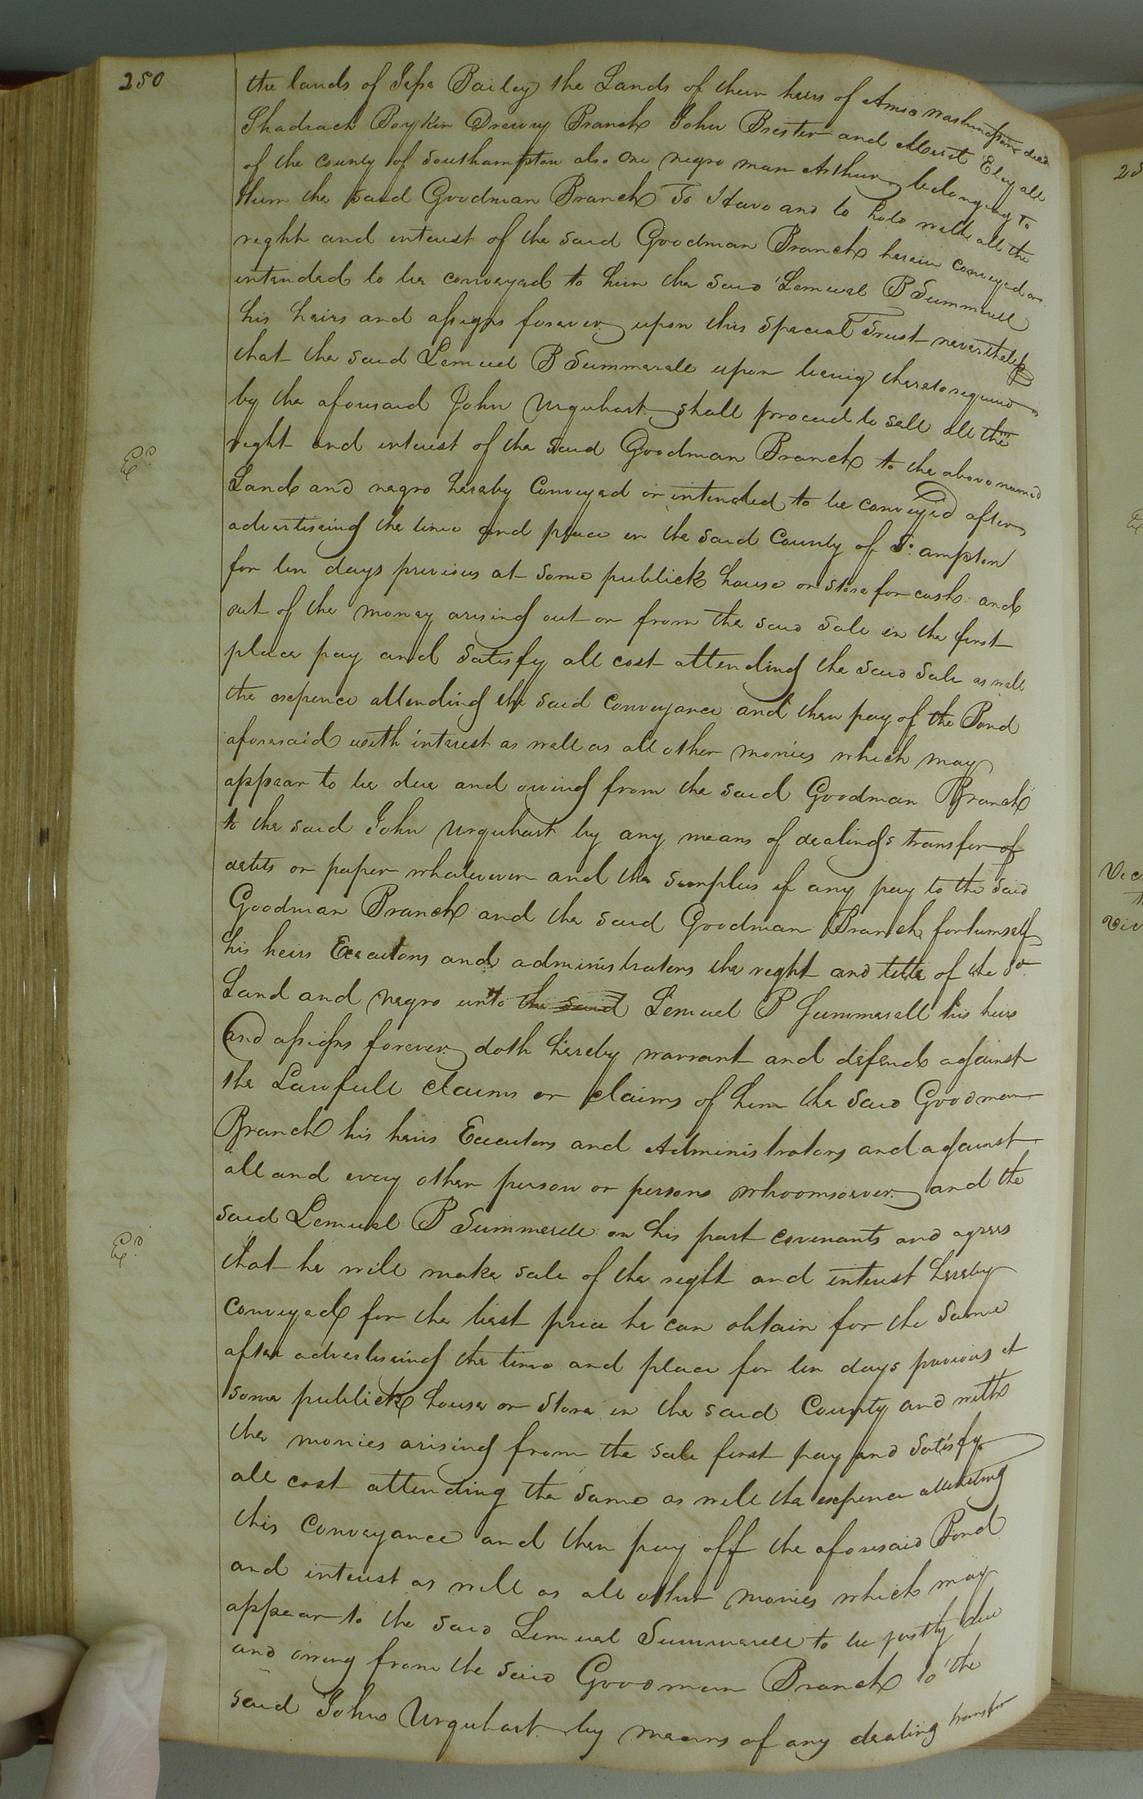 250
the lands of Jesse Bailey the Lands of them heirs of Amos Washington decd
Shadrack Boykin Drewry Branch John Brister and Morist Eley all
of the county of Southampton also one negro man Arthur belonging to
Him the said Goodman Branch To Have and to hold well all the
right and interest of the said Goodman Branch herein conveyed or
intended to be conveyed to him the said Lemuel P Summerell
his heirs and assigns forever upon this special Trust nevertheless
that the said Lemuel P Summerell upon being thereto required
by the aforesaid John Urquhart shall proceed to sell all the
right and interest of the said Goodman Branch to the above named
Ed
Land and negro hereby Conveyed or intended to be conveyed after
advertising the time and place in the said County of So ampton
for ten days previous at some publick house or store for cash and
out of the money arising out or from the said Sale in the first
place pay and satisfy all cost attending the said Sale as well
the expence attending the said conveyance and then pay of the Bond
aforesaid with interest as well as all other monies which may
appear to be due and owing from the said Goodman Branch
to the said John Urquhart by any means of dealings transfer of
debts or paper whatsoever and the surplus if any pay to the said
Goodman Branch and the said Goodman Branch for himself
his heirs Executors and administrators the right and title of the sd
Land and negro unto the said Lemuel P Summerell his heirs
and assigns forever doth hereby warrant and defend against
the Lawfull claims or claims of him the said Goodman
Branch his heirs Executors and Administrators and against
all and every other person or persons whoomsoever and the
Ed
said Lemuel P Summerell on his part covenants and agrees
that he will make sale of the right and interest hereby
conveyed for the best price he can obtain for the same
after advertising the time and place for ten days previous at
some publick house or store in the said County and with
the monies arising from the sale first pay and satisfy
all cost attending the same as well the expence attending
this conveyance and then pay off the aforesaid Bond
and interest as well as all other monies which may
appear to the said Lemuel Summerell to be justly due
and owing from the said Goodman Branch to the
said John Urquhart by means of any dealing transfer